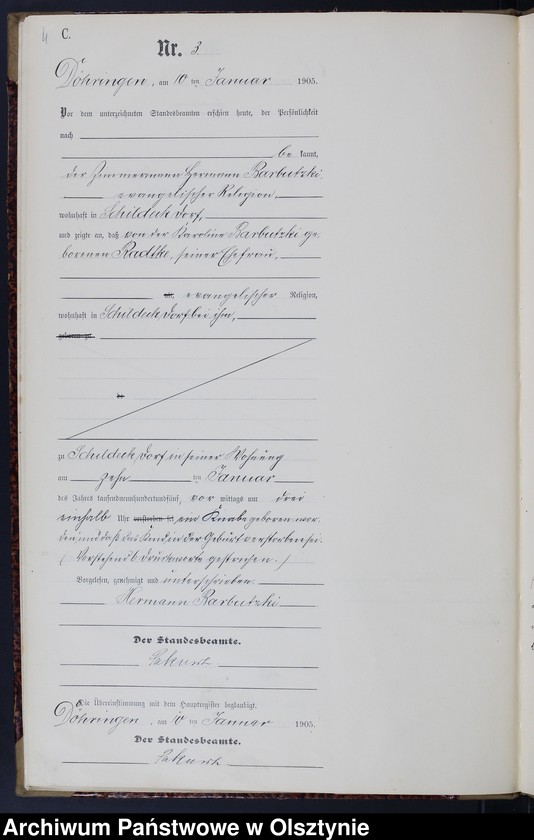 4 C.
Nr. 3.
Döhringen, am 10 ten Januar 1905.
Vor dem unterzeichneten Standesbeamten erschien heute, der Persönlichkeit
nach
be kannt,
der Zimmermann Hermann Barbutzki
evangelischer Religion,
wohnhaft in Schildeck Dorf,
und zeigte an, daß von der Karoline Barbutzki ge-
borenen Radtke, seiner Ehefrau,
alt, evangelischer Religion,
wohnhaft in Schildeck Dorf bei ihm,
geboren zu
de
zu Schildeck Dorf in seiner Wohnung
am zehn ten Januar
des Jahres tausendneunhundertundfünf, vor mittags um drei
einhalb Uhr verstorben sei ein Knabe geboren wor-
den und daß das Kind in der Geburt verstorben sei.
(Vorstehend 6 Druckworte gestrichen.)
Vorgelesen, genehmigt und unterschrieben.
Hermann Barbutzki
Der Standesbeamte.
Die Übereinstimmung mit dem Hauptregister beglaubigt.
Döhringen, am 10 ten Januar 1905.
Der Standesbeamte.
Archiwum Państwowe w Olsztynie